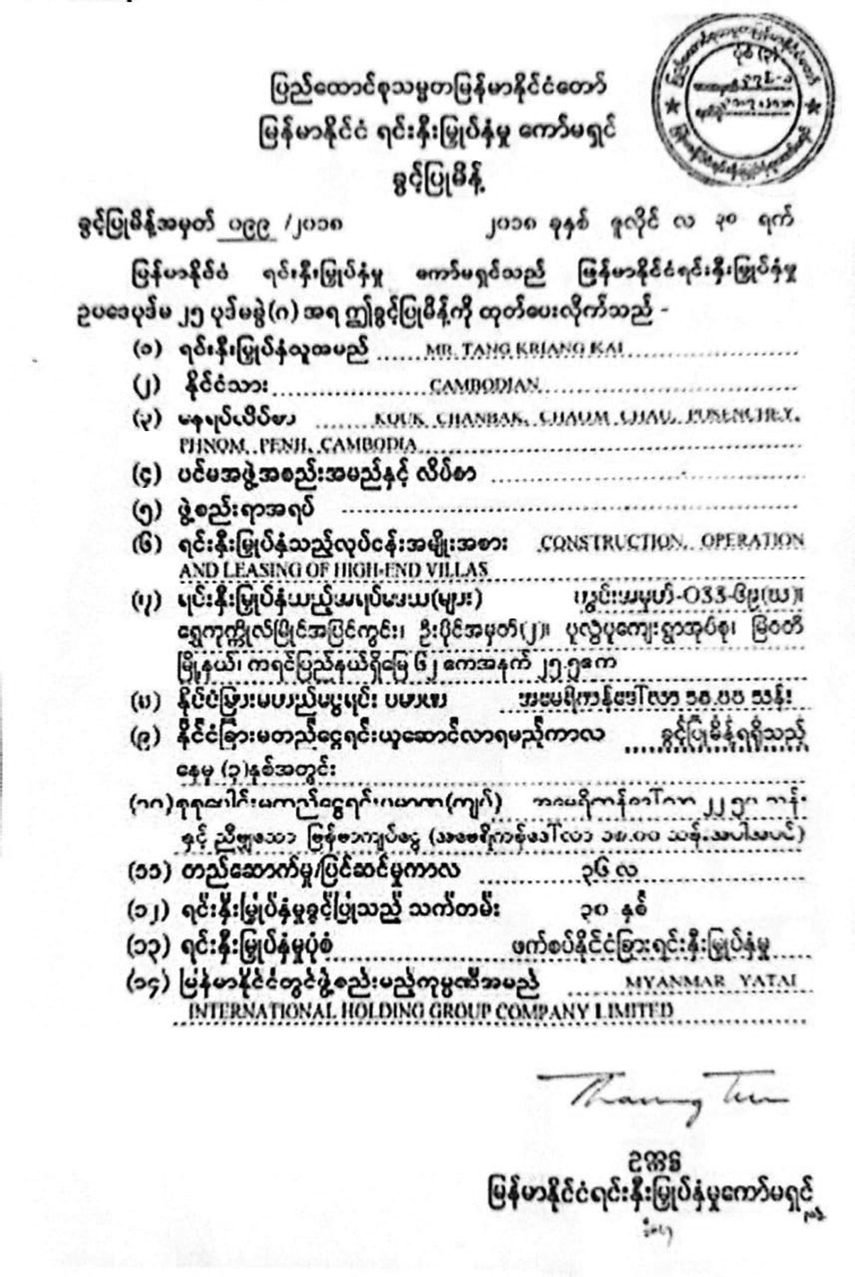 ပြည်ထောင်စုသမ္မတမြန်မာနိုင်ငံတော်
မြန်မာနိုင်ငံ ရင်းနှီးမြှုပ်နှံမှု ကော်မရှင်
ခွင့်ပြုမိန့်
ပုံစံ (၃)
ခွင့်ပြုမိန့်အမှတ် ၀၉၉ /၂၀၁၈ ၂၀၁၈ ခုနှစ် ဇူလိုင် လ ၃၀ ရက်
မြန်မာနိုင်ငံ ရင်းနှီးမြှုပ်နှံမှု ကော်မရှင်သည် မြန်မာနိုင်ငံရင်းနှီးမြှုပ်နှံမှု
ဥပဒေပုဒ်မ ၂၅ ပုဒ်မခွဲ(ဂ) အရ ဤခွင့်ပြုမိန့်ကို ထုတ်ပေးလိုက်သည် -
(၁) ရင်းနှီးမြှုပ်နှံသူအမည် MR. TANG KRIANG KAI
(၂) နိုင်ငံသား CAMBODIAN
(၃) နေရပ်လိပ်စာ KOUK CHANBAK, CHAOM CHAU, PUSENCHEY,
PHNOM, PENH, CAMBODIA
(၄) ပင်မအဖွဲ့အစည်းအမည်နှင့် လိပ်စာ
(၅) ဖွဲ့စည်းရာအရပ်
(၆) ရင်းနှီးမြှုပ်နှံသည့်လုပ်ငန်းအမျိုးအစား CONSTRUCTION, OPERATION
AND LEASING OF HIGH-END VILLAS
(၇) ရင်းနှီးမြှုပ်နှံသည့်အရပ်ဒေသ(များ) ကွင်းအမှတ်-၀၁၁-၆၉(ဃ)၊
ရွှေကုက္ကိုလ်မြိုင်အပြင်ကွင်း၊ ဦးပိုင်အမှတ်(၂)၊ ပုလွှဲပူကျေးရွာအုပ်စု၊ မြဝတီ
မြို့နယ်၊ ကရင်ပြည်နယ်ရှိမြေ ၆၂ ဧကအနက် ၂၅.၅ဧက
(၈) နိုင်ငံခြားမတည်ငွေရင်း ပမာဏ အမေရိကန်ဒေါ်လာ ၁၈.၀၀ သန်း
(၉) နိုင်ငံခြားမတည်ငွေရင်းယူဆောင်လာရမည့်ကာလ ခွင့်ပြုမိန့်ရရှိသည့်
နေ့မှ (၃)နှစ်အတွင်း
(၁၀) စုစုပေါင်းမတည်ငွေရင်းပမာဏ(ကျပ်) အမေရိကန်ဒေါ်လာ ၂၂.၅၀ သန်း
နှင့် ညီမျှသော မြန်မာကျပ်ငွေ (အမေရိကန်ဒေါ်လာ ၁၈.၀၀ သန်းအပါအဝင်)
(၁၁) တည်ဆောက်မှု/ပြင်ဆင်မှုကာလ ၃၆ လ
(၁၂) ရင်းနှီးမြှုပ်နှံမှုခွင့်ပြုသည့် သက်တမ်း ၃၀ နှစ်
(၁၃) ရင်းနှီးမြှုပ်နှံမှုပုံစံ ဖက်စပ်နိုင်ငံခြားရင်းနှီးမြှုပ်နှံမှု
(၁၄) မြန်မာနိုင်ငံတွင်ဖွဲ့စည်းမည့်ကုမ္ပဏီအမည် MYANMAR YATAI
INTERNATIONAL HOLDING GROUP COMPANY LIMITED
ဥက္ကဋ္ဌ
မြန်မာနိုင်ငံရင်းနှီးမြှုပ်နှံမှုကော်မရှင်